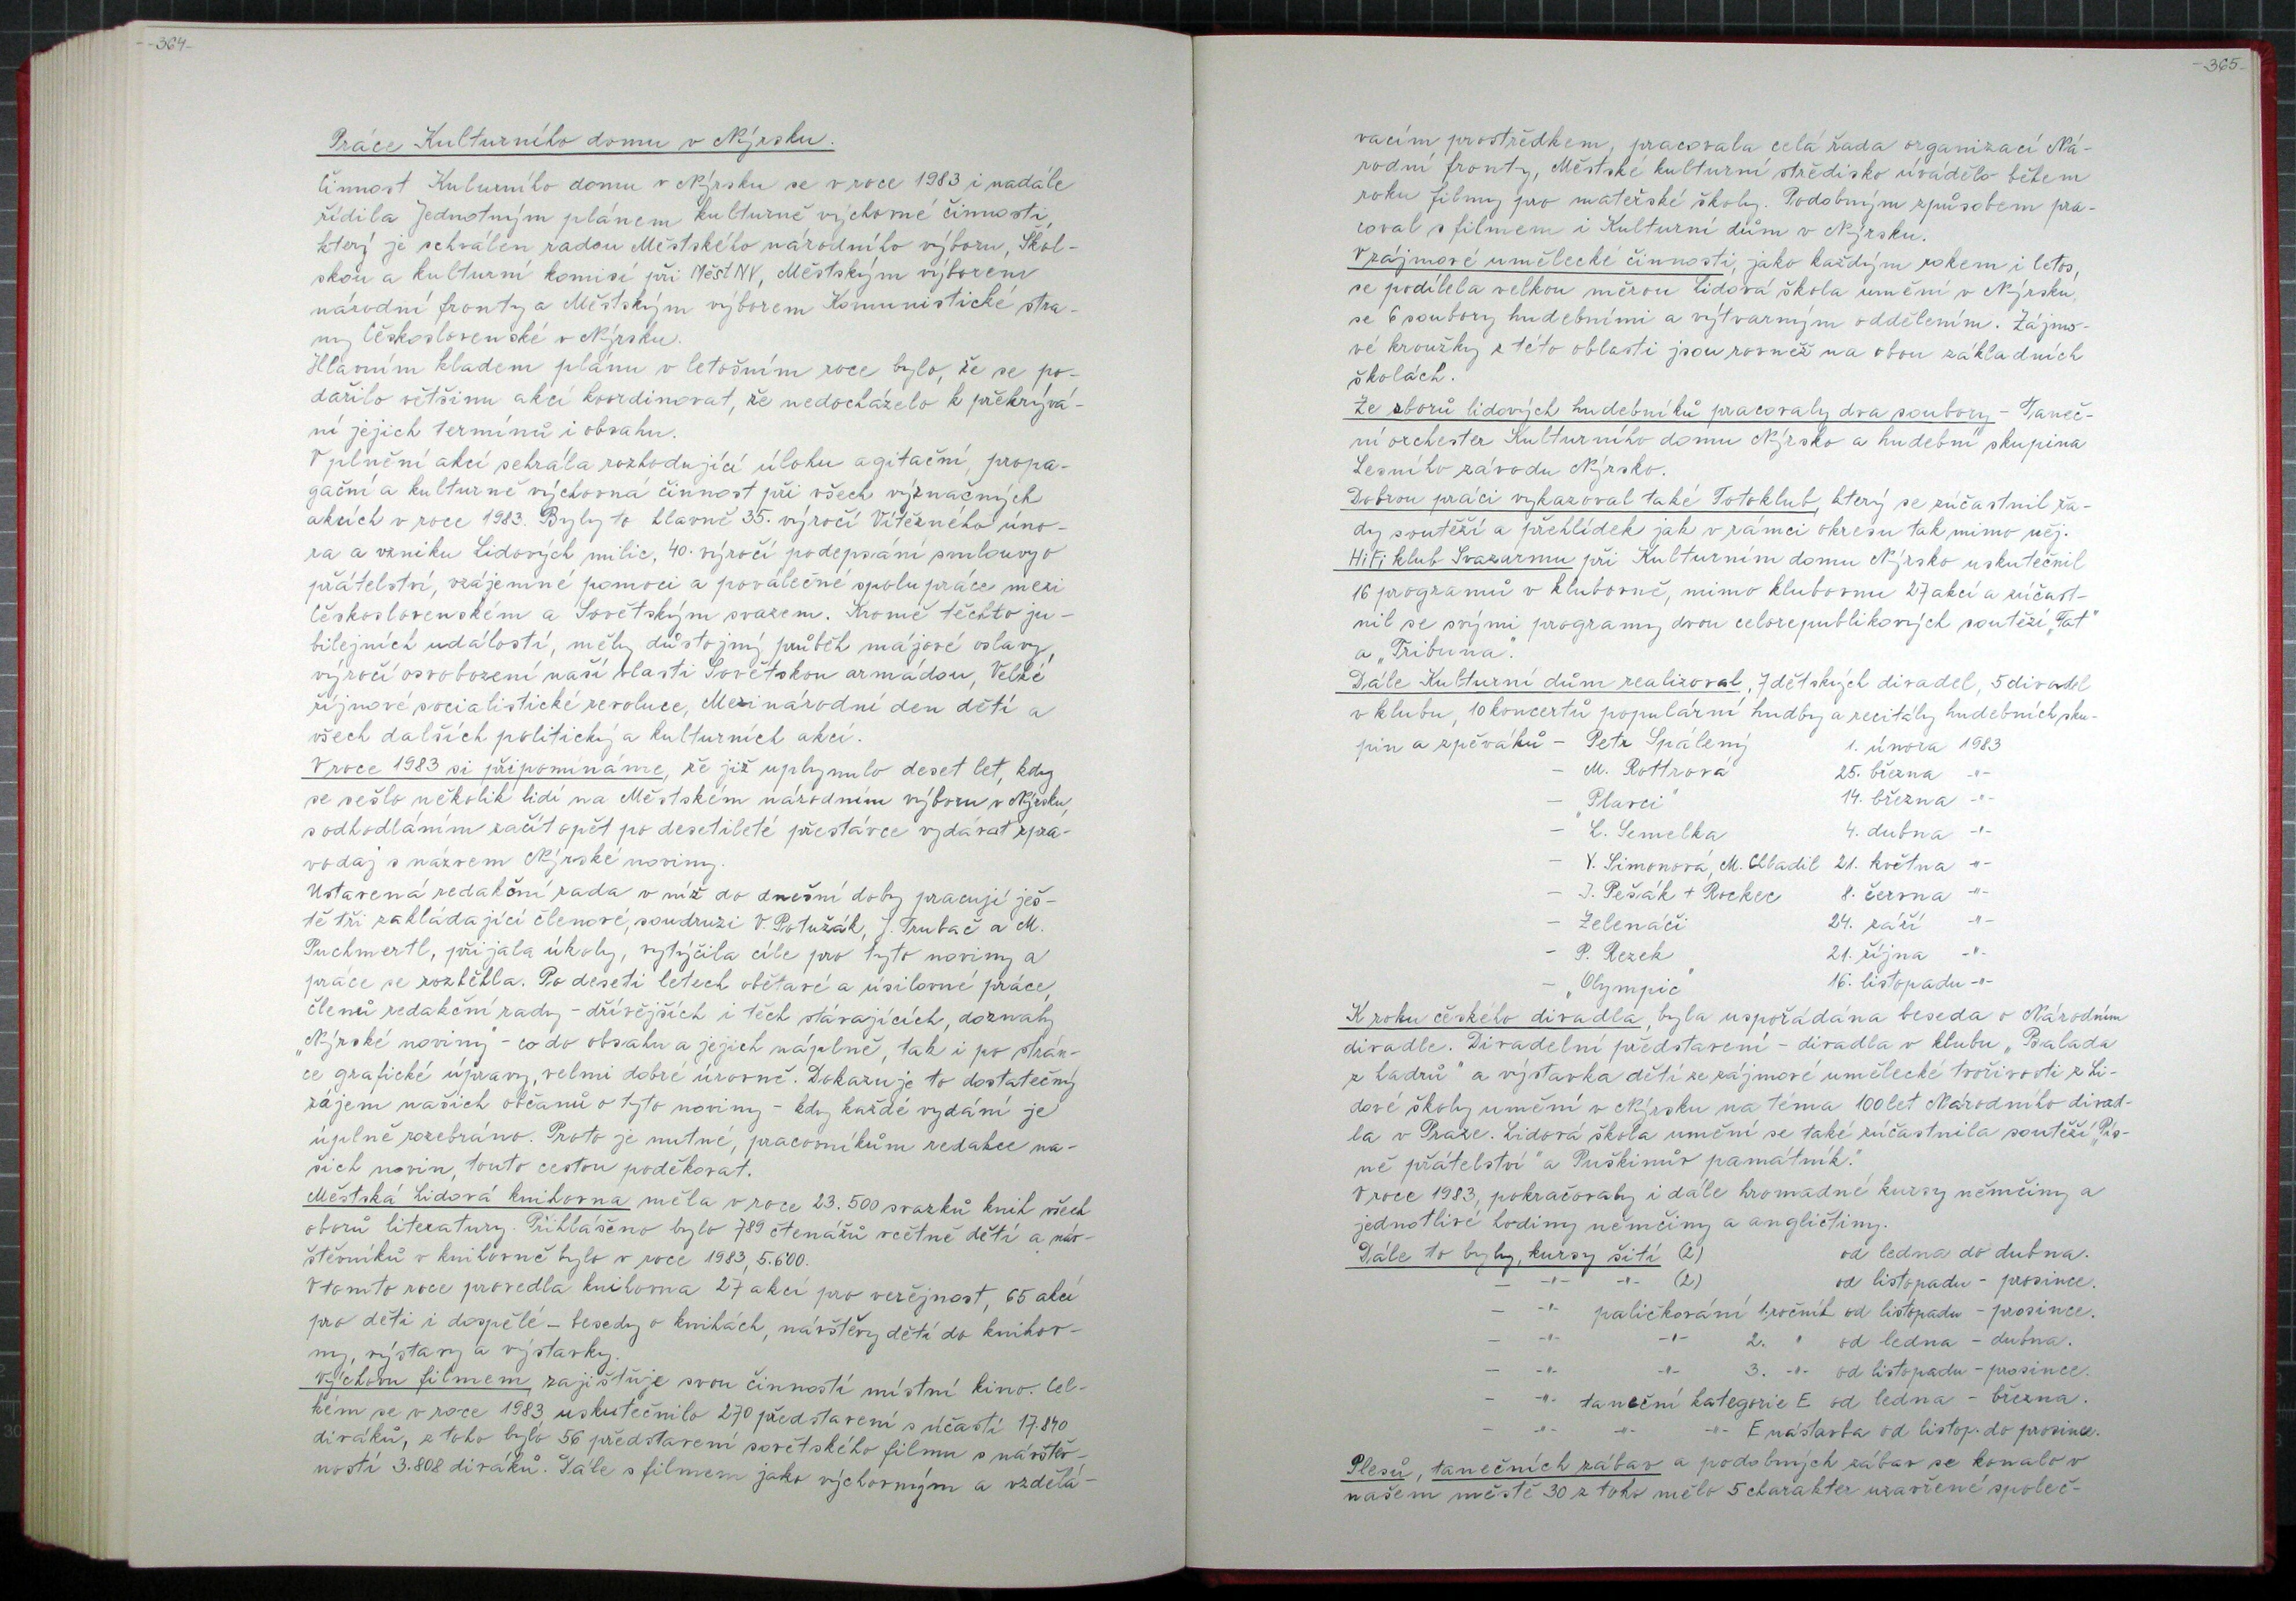 -364-
Práce Kulturního domu v Nýrsku.
Činnost Kuturního domu v Nýrsku se v roce 1983 i nadále
řídila Jednotným plánem kulturně výchovné činnosti,
který je schválen radou Městského národního výboru, Škol-
skou a kulturní komisí při Měst NV, Městským výborem
národní fronty a Městským výborem Komunistické stra-
ny Československé v Nýrsku.
Hlavním kladem plánu v letošním roce bylo, že se po-
dařilo většinu akcí koordinovat, že nedocházelo k překrývá-
ní jejich termínů i obsahu.
V plnění akcí sehrála rozhodující úlohu agitační, propa-
gační a kulturně výchovná činnost při všech význačných
akcích v roce 1983. Byly to hlavně 35. výročí Vítězného úno-
ra a vzniku Lidových milic, 40. výročí podepsání smlouvy o
přátelství, vzájemné pomoci a poválečné spolupráce mezi
Československém a Sovětským svazem. Kromě těchto ju-
bilejních událostí, měly důstojný průběh májové oslavy,
výročí osvobození naší vlasti Sovětskou armádou, Velké
říjnové socialistické revoluce, Mezinárodní den dětí a
všech dalších politický a kulturních akcí.
V roce 1983 si připomínáme, že již uplynulo deset let, kdy
se sešlo několik lidí na Městském národním výboru v Nýrsku,
s odhodláním začít opět po desetileté přestávce vydávat zpra-
vodaj s názvem Nýrské noviny.
Ustavená redakční rada v níž do dnešní doby pracují ješ-
tě tři zakládající členové, soudruzi V. Potužák, J. Trubač a M.
Puchmertl, přijala úkoly, vytýčila cíle pro tyto noviny a
práce se rozběhla. Po deseti letech obětavé a úsilovné práce,
členů redakční rady - dřívějších i těch stávajících, doznaly
„Nýrské noviny" - co do obsahu a jejich náplně, tak i po strán-
ce grafické úpravy, velmi dobré úrovně. Dokazuje to dostatečný
zájem našich občanů o tyto noviny - kdy každé vydání je
úplně rozebráno. Proto je nutné, pracovníkům redakce na-
šich novin, touto cestou poděkovat.
Městská Lidová knihovna měla v roce 23.500 svazků knih všech
oborů literatury. Přihlášeno bylo 789 čtenářů včetně dětí a náv-
štěvníků v knihovně bylo v roce 1983, 5.600.
V tomto roce provedla knihovna 27 akcí pro veřejnost, 65 akcí
pro děti i dospělé - besedy o knihách, návštěvy dětí do knihov-
ny, výstavy a výstavky.
Výchovu filmem zajištuje svou činností místní kino. Cel-
kém se v roce 1983 uskutečnilo 270 představení s účastí 17.840
diváků, z toho bylo 56 představení sovětského filmu s návštěv-
ností 3.808 diváků. Dále s filmem jako výchovným a vzdělá-
-365-
vacím prostředkem, pracovala celá řada organizací Ná-
rodní fronty, Městské kulturní středisko úvádělo během
roku filmy pro mateřské školy. Podobným způsobem pra-
coval s filmem i Kulturní dům v Nýrsku.
V zájmové umělecké činnosti, jako každým rokem i letos,
se podílela velkou měrou Lidová škola umění v Nýrsku,
se 6 soubory hudebními a výtvarným oddělením. Zájmo-
vé kroužky z této oblasti jsou rovněž na obou základních
školách.
Ze sborů lidových hudebníků pracovaly dva soubory - Taneč-
ní orchester Kulturního domu Nýrsko a hudební skupina
Lesního závodu Nýrsko.
Dobrou práci vykazoval také Fotoklub, který se zúčastnil řa-
dy soutěží a přehlídek jak v rámci okresu tak mimo něj.
HiFi klub Svazarmu při Kulturním domu Nýrsko uskutečnil
16 programů v klubovně, mimo klubovnu 27 akcí a zúčast-
nil se svými programy dvou celorepublikových soutěží „Tat"
a „Tribuna".
Dále Kulturní dům realizoval, 7 dětských divadel, 5 divadel
v klubu, 10 koncertů populární hudby a recitály hudebních sku-
pin a zpěváků - Petr Spálený 1. února 1983
- M. Rottrová 25. března -"-
- „Plavci" 14. března -"-
- L. Semelka 4. dubna -"-
- Y. Simonová, M. Chladil 21. května -"-
- J. Pešák + Rockec 8. června -"-
- Zelenáči 24. září -"-
- P. Rezek 21. října -"-
- „Olympic" 16. listopadu -"-
K roku českého divadla, byla uspořádána beseda o Národním
divadle. Divadelní představení - divadla v klubu „Balada
z hadrů" a výstavka dětí ze zájmové umělecké tvořivosti z Li-
dové školy umění v Nýrsku na téma 100 let Národního divad-
la v Praze. Lidová škola umění se také zúčastnila soutěží „Pís-
ně přátelství" a Puškinův památník".
V roce 1983, pokračovaly i dále hromadné kursy němčiny a
jednotlivé hodiny němčiny a angličtiny.
Dále to byly, kursy šití (2) od ledna do dubna.
- -"- -"- (2) od listopadu - prosince.
- -"- paličkování 1. ročník od listopadu - prosince.
- -"- -"- 2. " od ledna - dubna.
- -"- -"- 3. -"- od listopadu - prosince.
- -"- taneční kategorie E od ledna - března.
- -"- -"- -"- E nástavba od listop. do prosince.
Plesů, tanečních zábav a podobných zábav se konalo v
našem městě 30 z toho mělo 5 charakter uzavřené společ-